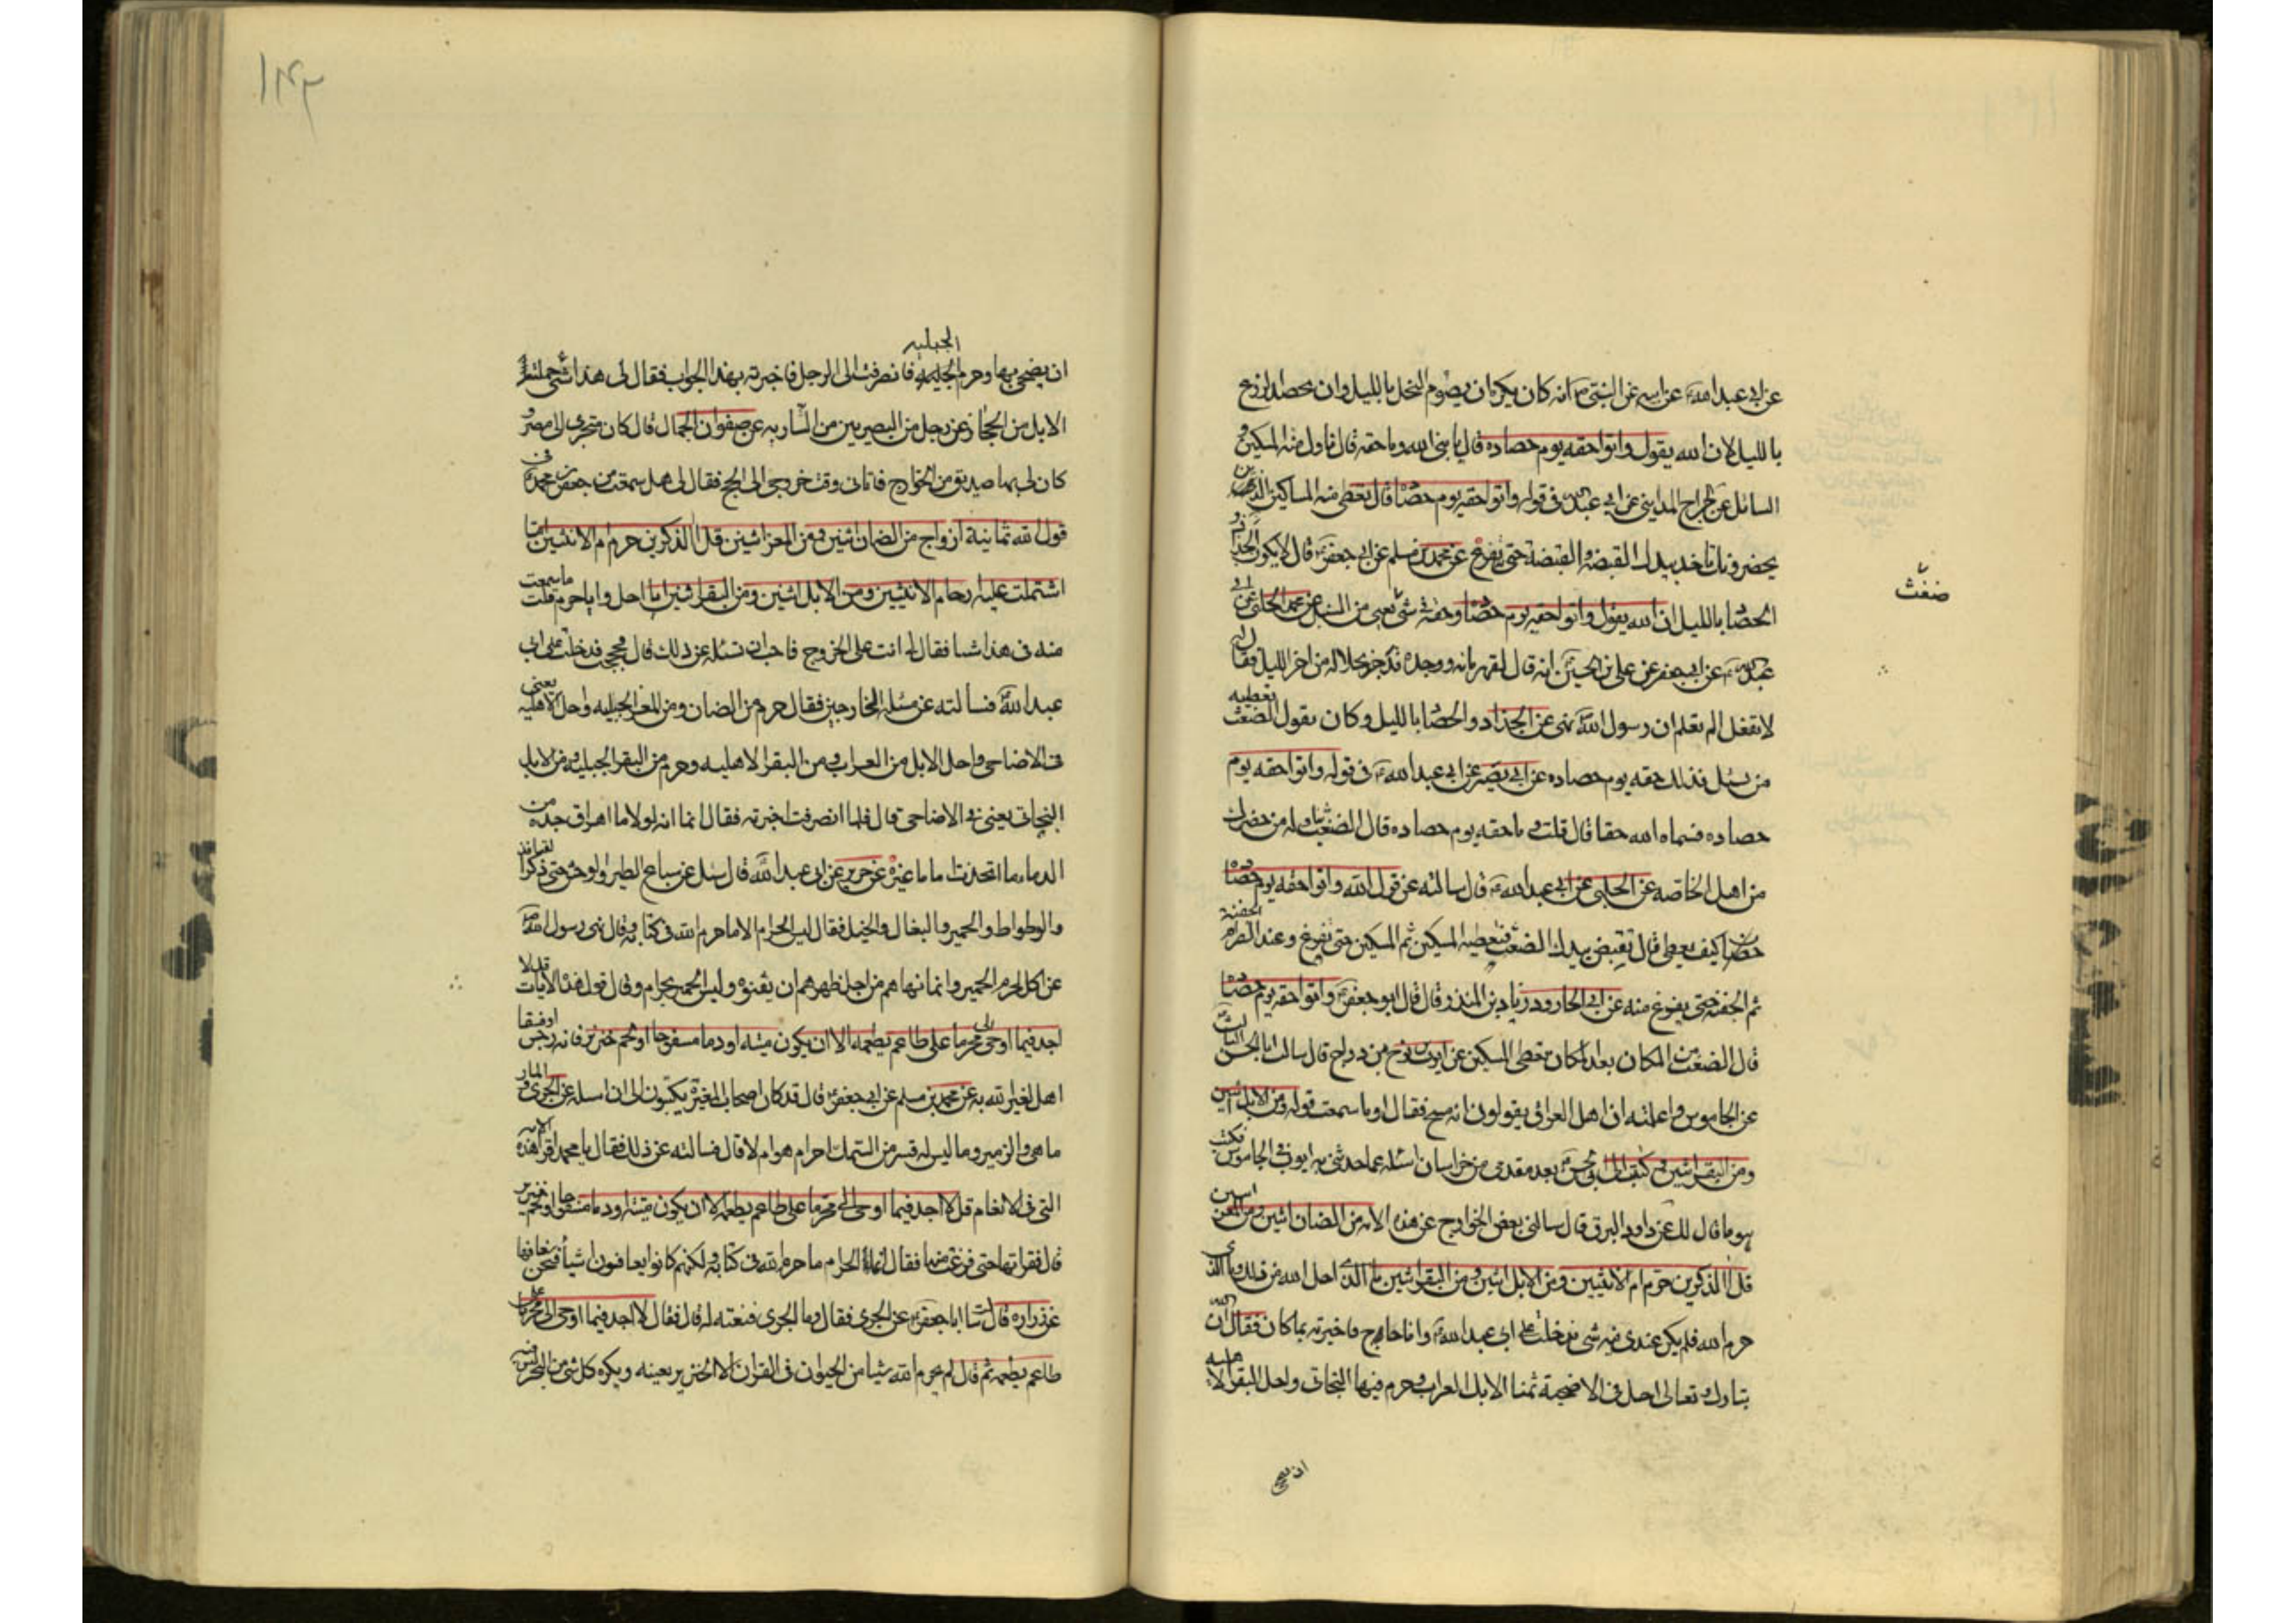 عن ابي عبد الله عن ابيه عن النبي ص انه كان يكره ان يصرم النخل بالليل وان يحصد الزرع
بالليل لان الله يقول واتوا حقه يوم حصاده قال يا نبي الله وما حقه قال ناول منه المسكين و
السائل عن جراح المدايني عن ابي عبد الله في قوله واتوا حقه يوم حصاده قال تعطي منه المساكين الذين
يحضرونك تاخذ بيدك القبضة والقبضة حتى تفرغ عن محمد بن مسلم عن ابي جعفر قال لا يكون الجذاذ و
الحصاد بالليل ان الله يقول واتوا حقه يوم حصاده وحقه شئ يعني من السنبل عن محمد الحلبي عن ابي
عبد الله عن ابي جعفر عن علي بن الحسين انه قال لقهرمانه ووجده قد جذ نخلا له من اخر الليل فقال له
لا تفعل الم تعلم ان رسول الله نهى عن الجذاذ والحصاد بالليل وكان يقول الضغث تعطيه
من يسئل فذلك حقه يوم حصاده عن ابي بصير عن ابي عبد الله في قوله واتوا حقه يوم
حصاده فسماه الله حقا قال قلت وما حقه يوم حصاده قال الضغث يناوله من حضرك
من اهل الخاصه عن الحلبي عن ابي عبد الله قال سالته عن قول الله واتوا حقه يوم حصاده
كيف يعطى قال تقبض بيدك الضغث فتعطيه المسكين ثم المسكين حتى تفرغ وعند الصرام الحفنة
ثم الحفنة حتى يفرغ منه عن ابي الجارود زياد بن المنذر قال قال ابو جعفر واتوا حقه يوم حصاده
قال الضغث من المكان بعد المكان تعطي المسكين عن ايوب بن نوح بن دراج قال سالت ابا الحسن الثالث
عن الجاموس واعلمته ان اهل العراق يقولون انه مسخ فقال او ما سمعت قوله ومن الابل اثنين
ومن البقر اثنين وكتبت الى ابي الحسن بعد مقدمي من خراسان اسئله عما حدثني به ايوب في الجاموس فكتب
هو ما قال لك عن داود البرقي قال سالني بعض الخوارج عن هذه الايه من الضان اثنين ومن المعز اثنين
قل االذكرين حرم ام الانثيين ومن الابل اثنين ومن البقر اثنين ما الذي احل الله من ذلك وما الذي
حرم الله فلم يكن عندي فيه شئ فدخلت على ابي عبد الله وانا حاج فاخبرته بما كان فقال ان الله
تبارك وتعالى احل في الاضحية بمنا الابل العراب وحرم فيها البخاتي واحل البقر الاهليه
ان يضحي
ضغث
۱۴۲
ان يضحي بها وحرم الجبليه فانصرفت الى الرجل فاخبرته بهذا الجواب فقال لي هذا شئ حملته
الابل من الحجاز وعن رجل من البصريين من الشاريه عن صفوان الجمال قال كان متجري الى مصر و
كان لي بها صديق من الخوارج فاتاني وقت خروجي الى الحج فقال لي هل سمعت من جعفر بن محمد في
قول الله ثمانية ازواج من الضان اثنين ومن المعز اثنين قل االذكرين حرم ام الانثيين اما
اشتملت عليه ارحام الانثيين ومن الابل اثنين ومن البقر اثنين ايا احل وايا حرم قلت ما سمعت
منه في هذا شيا فقال لي انت على الخروج فاحب ان تسئله عن ذلك قال فحججت فدخلت على ابي
عبد الله فسالته عن مسئلة الخارجي فقال حرم من الضان ومن المعز الجبليه واحل الاهليه يعني
في الاضاحي واحل الابل من العراب ومن البقر الاهليه وحرم من البقر الجبليه ومن الابل
البخاتي يعني في الاضاحي قال فلما انصرفت اخبرته فقال اما انه لولا ما اهراق جده من
الدماء ما اتخذت اماما غيره عن حريز عن ابي عبد الله قال سئل عن سباع الطير والوحش حتى ذكر القنافذ
والوطواط والحمير والبغال والخيل فقال ليس الحرام الا ما حرم الله في كتابه وقال نهى رسول الله ص
عن اكل لحوم الحمير وانما نهاهم من اجل ظهرهم ان يفنوه وليس الحمير بحرام وقال اقرأ هذه الايات قل لا
اجد فيما اوحي الي محرما على طاعم يطعمه الا ان يكون ميتة او دما مسفوحا او لحم خنزير فانه رجس او فسقا
اهل لغير الله به عن محمد بن مسلم عن ابي جعفر قال قد كان اصحاب المغيرة يكتبون الي ان اسئله عن الجري و المار
ماهي والزمير وما ليس له قشر من السمك احرام هو ام لا قال فسالته عن ذلك فقال يا محمد اقرأ هذه الايه
التي في الانعام قل لا اجد فيما اوحي الي محرما على طاعم يطعمه الا ان يكون ميتة او دما مسفوحا او لحم خنزير
قال فقراتها حتى فرغت منها فقال انما الحرام ما حرم الله في كتابه ولكنهم كانوا يعافون اشياء فنحن نعافها
عن زراره قال سالت ابا جعفر عن الجري فقال وما الجري فنعته له قال فقال لا اجد فيما اوحي الي محرما على
طاعم يطعمه ثم قال لم يحرم الله شيا من الحيوان في القران الا الخنزير بعينه ويكره كل شئ من البحر ليس فيه